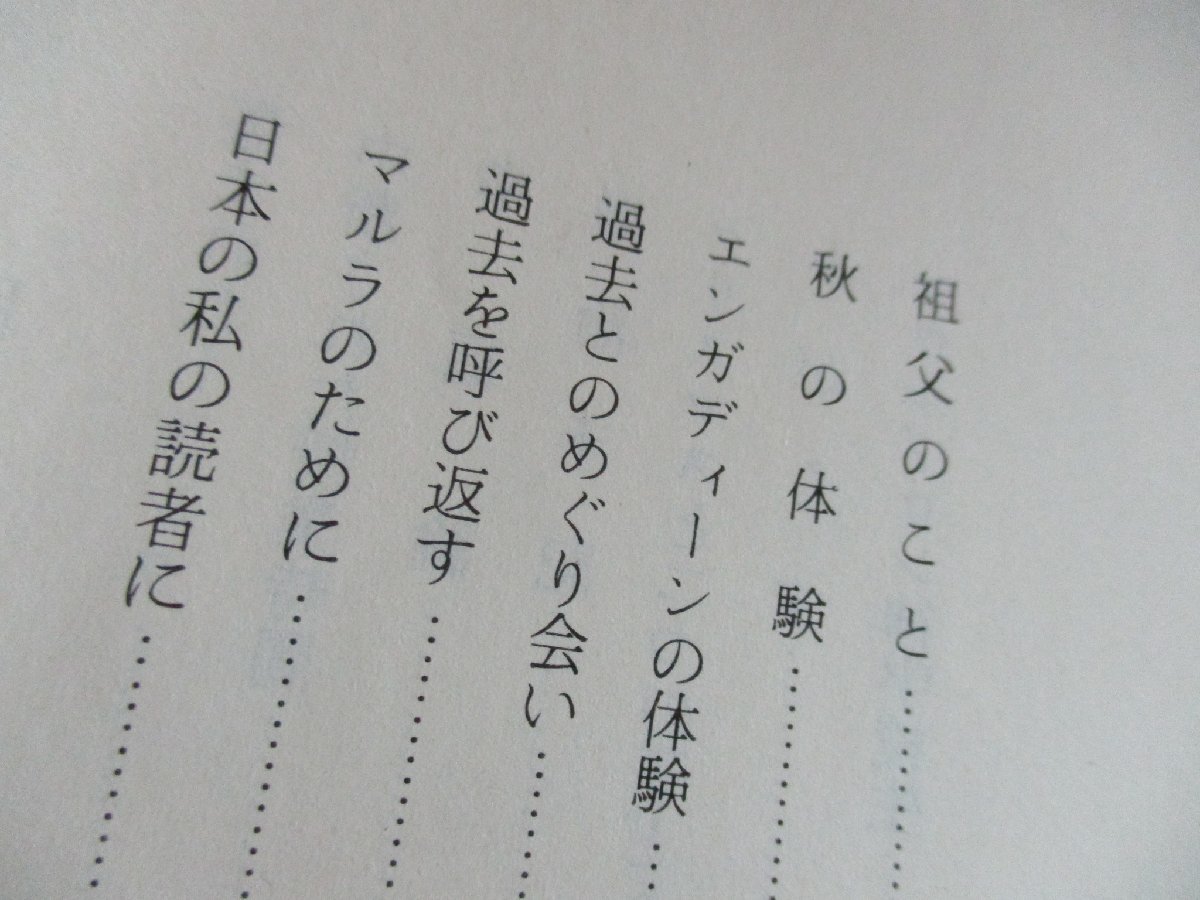 祖父のこと…………
秋の体験…………
エンガディーンの体験…
過去とのめぐり会い………
過去を呼び返す…………
マルラのために…………
日本の私の読者に…………